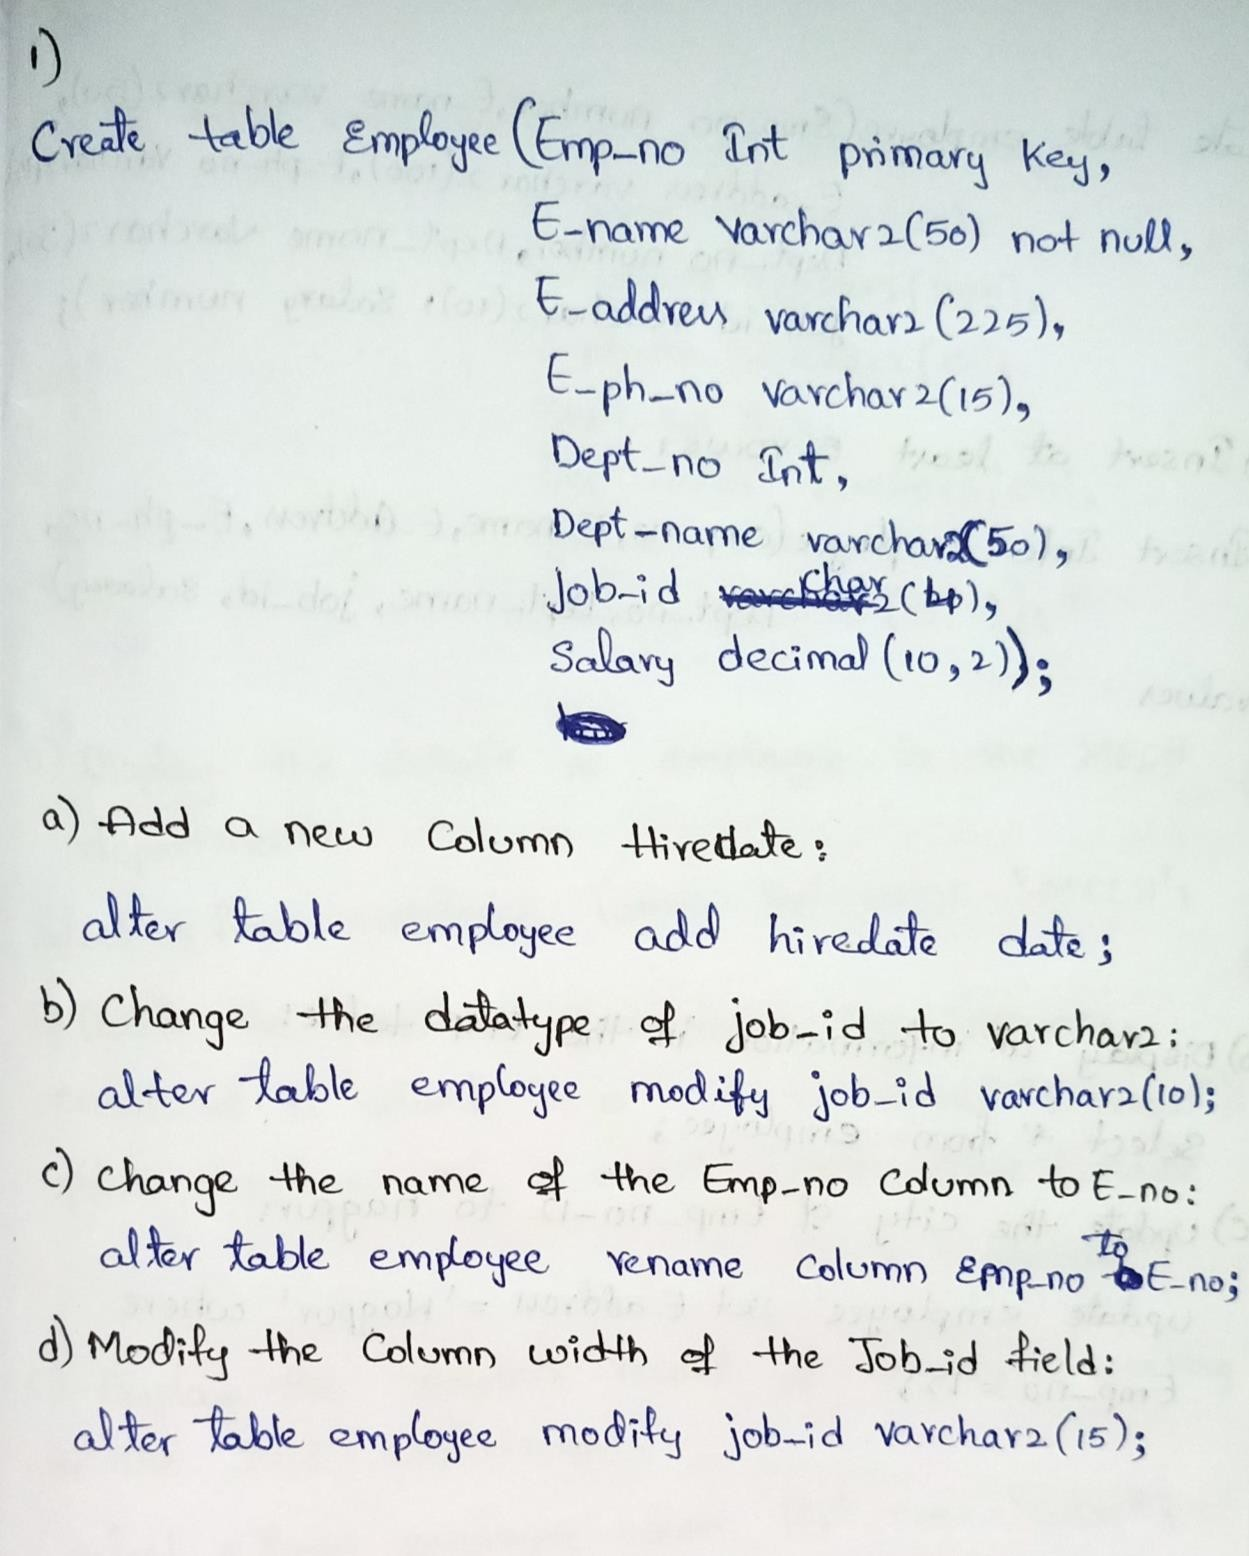 1)
Create table Employee (Emp_no Int primary key,
E_name varchar2(50) not null,
E_address varchar2(225),
E_ph_no varchar2(15),
Dept_no Int,
Dept_name varchar2(50),
Job_id char
Salary decimal (10,2));
a) Add a new Column Hiredate:
alter table employee add hiredate date;
b) Change the datatype of job_id to varchar2:
alter table employee modify job_id varchar2(10);
c) change the name of the Emp_no Column to E_no:
alter table employee rename column Emp_no to E_no;
d) Modify the Column width of the Job_id field:
alter table employee modify job_id varchar2(15);